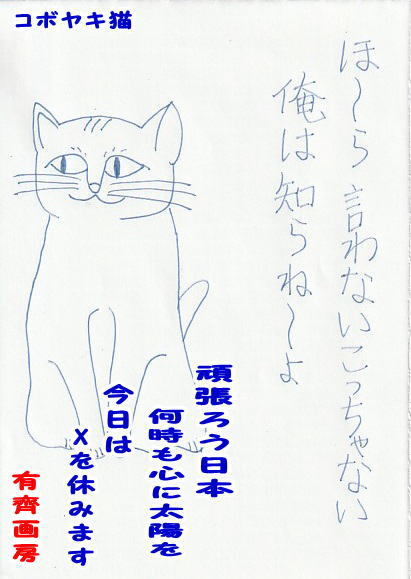 コボヤキ猫
ほ〜ら言わないこっちゃない
俺は知らね〜よ
頑張ろう日本
何時も心に太陽を
今日は
Xを休みます
有齊画房